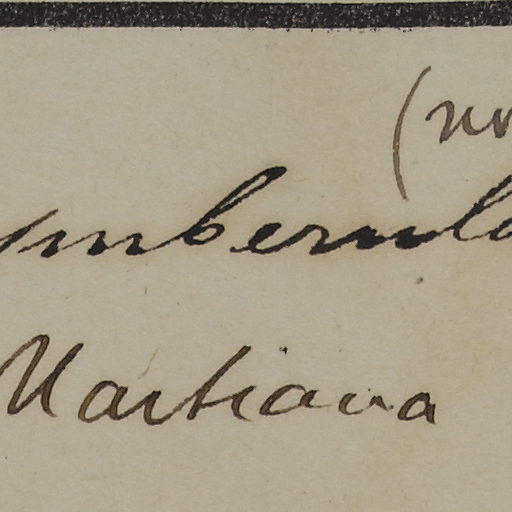 (no
mberula
Martiana